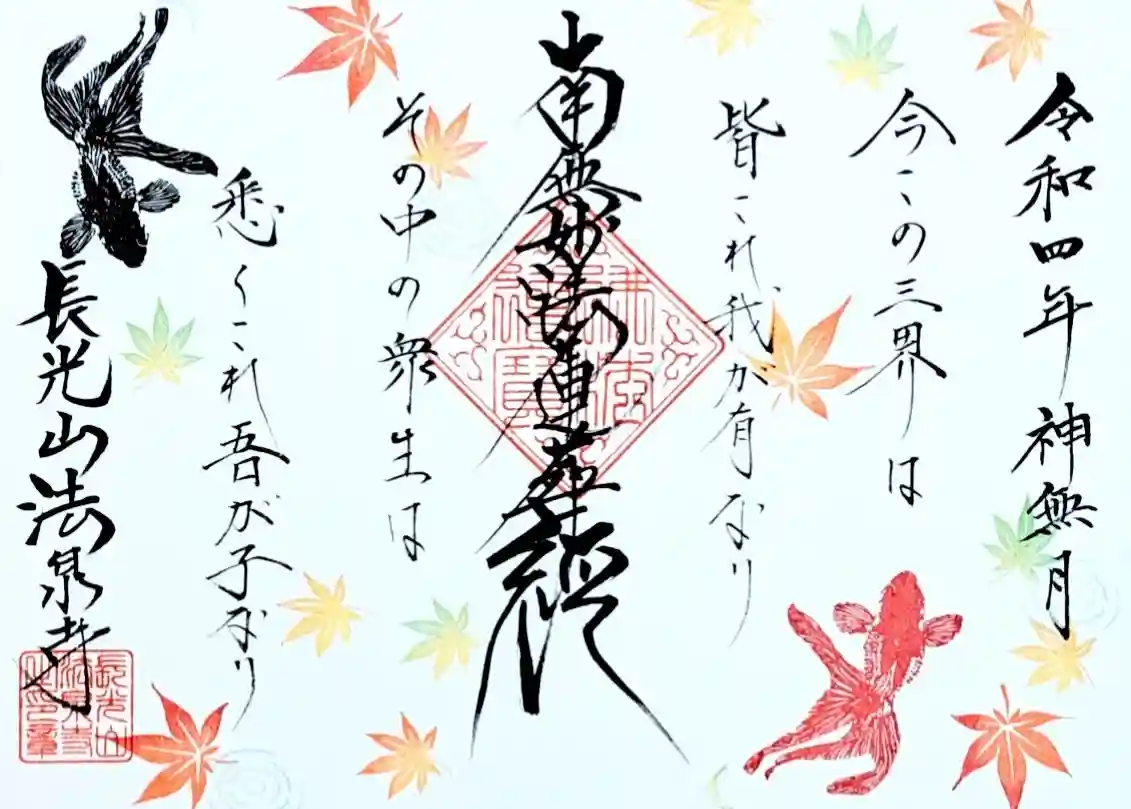 令和四年 神無月
今この三界は
皆これ我が有なり
南無妙法蓮華経
その中の衆生は
悉くこれ吾が子なり
長光山法泉寺
長光山
法泉寺
之印章